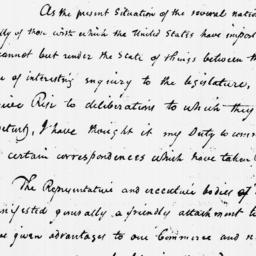 As the present situation of the several natio
ly of those with which the United States have import
cannot but render the State of things between th
of interesting enquiry to the legislature,
Rise to deliberations to which they
I have thought it my Duty to comm
certain correspondences which have taken
The Representative and executive bodies of
nifested generally a friendly attachment t
given advantages to our Commerce and n